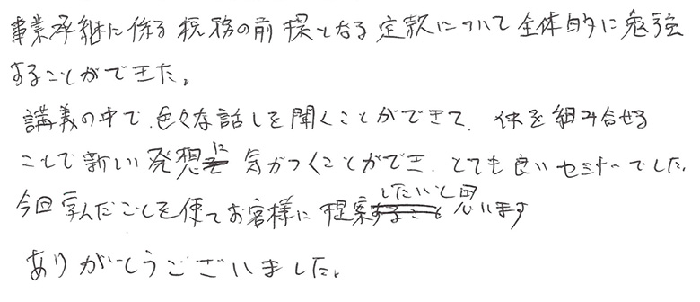 事業承継に係る税務の前提となる定款について全体的に勉強
することができた。
講義の中で色々な話しを聞くことができて、体を組み合せる
ことで新しい発想に気がつくことができ、とても良いセミナーでした。
今回学んだことを使てお客様に提案したいと思います
ありがとうございました。